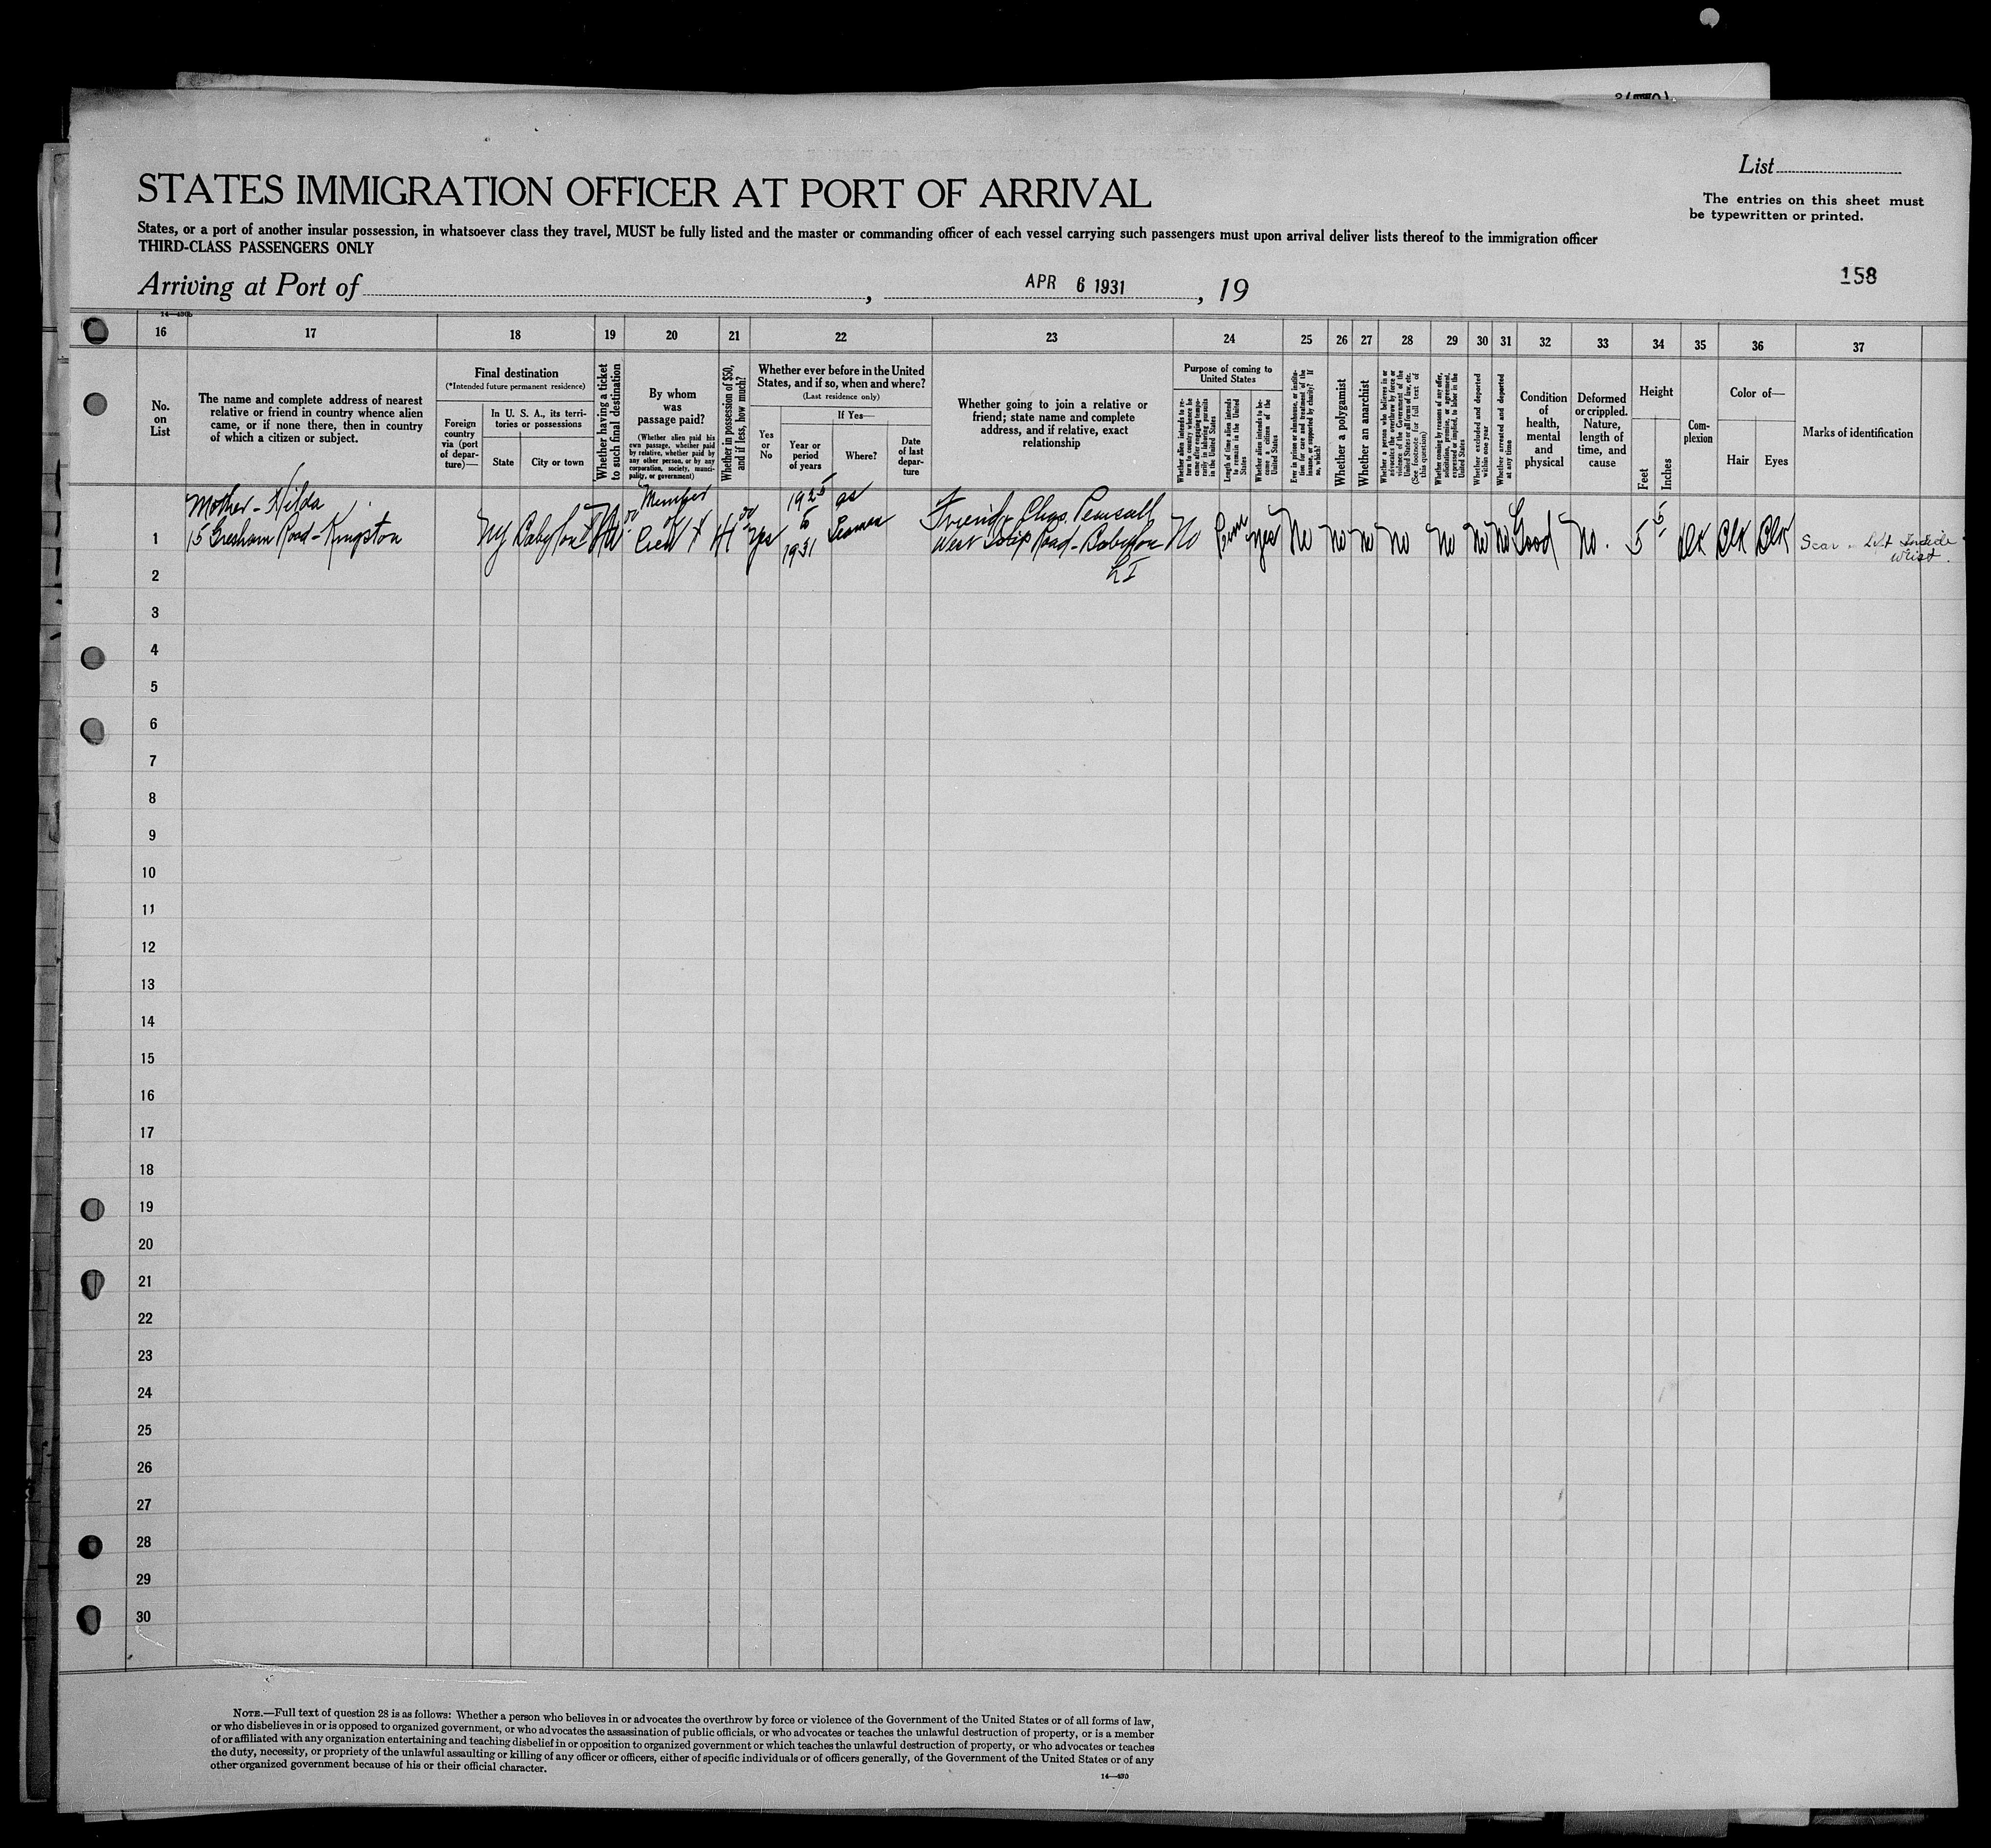 List
The entries on this sheet must
be typewritten or printed.
STATES IMMIGRATION OFFICER AT PORT OF ARRIVAL
States, or a port of another insular possession, in whatsoever class they travel, MUST be fully listed and the master or commanding officer of each vessel carrying such passengers must upon arrival deliver lists thereof to the immigration officer
THIRD-CLASS PASSENGERS ONLY
158
Arriving at Port of , APR 6 1931 , 19
14—430b
16 17 18 19 20 21 22 23 24 25 26 27 28 29 30 31 32 33 34 35 36 37
No.
on
List
The name and complete address of nearest
relative or friend in country whence alien
came, or if none there, then in country
of which a citizen or subject.
Final destination
(*Intended future permanent residence)
Foreign
country
via (port
of depar-
ture)—
In U. S. A., its terri-
tories or possessions
State
City or town
Whether having a ticket
to such final destination
By whom
was
passage paid?
(Whether alien paid his
own passage, whether paid
by relative, whether paid by
any other person, or by any
corporation, society, munici-
pality, or government)
Whether in possession of $50,
and if less, how much?
Whether ever before in the United
States, and if so, when and where?
(Last residence only)
Yes
or
No
If Yes—
Year or
period
of years
Where?
Date
of last
depar-
ture
Whether going to join a relative or
friend; state name and complete
address, and if relative, exact
relationship
Purpose of coming to
United States
Whether alien intends to re-
turn to country whence he
came after engaging tempo-
rarily in laboring pursuits
in the United States
Length of time alien intends
to remain in the United
States
Whether alien intends to be-
come a citizen of the
United States
Ever in prison or almshouse, or institu-
tion for care and treatment of the
insane, or supported by charity? If
so, which?
Whether a polygamist
Whether an anarchist
Whether a person who believes in or
advocates the overthrow by force or
violence of the Government of the
United States or all forms of law, etc.
(See footnote for full text of
this question)
Whether coming by reasons of any offer,
solicitation, promise, or agreement,
expressed or implied, to labor in the
United States
Whether excluded and deported
within one year
Whether arrested and deported
at any time
Condition
of
health,
mental
and
physical
Deformed
or crippled.
Nature,
length of
time, and
cause
Height
Feet
Inches
Com-
plexion
Color of—
Hair
Eyes
Marks of identification
Mother - Hilda
15 Gresham Road - Kingston
NY Babylon
Member
of
Crew
yes
1925
to
1931
as
Seaman
Friend, Chas. Pearsall
West Islip Road - Babylon
LI
No Perm yes No no no no no no no Good no. 5 5 Dk Blk Blk
Scar . Left Inside
Wrist.
1
2
3
4
5
6
7
8
9
10
11
12
13
14
15
16
17
18
19
20
21
22
23
24
25
26
27
28
29
30
NOTE.—Full text of question 28 is as follows: Whether a person who believes in or advocates the overthrow by force or violence of the Government of the United States or of all forms of law,
or who disbelieves in or is opposed to organized government, or who advocates the assassination of public officials, or who advocates or teaches the unlawful destruction of property, or is a member
of or affiliated with any organization entertaining and teaching disbelief in or opposition to organized government or which teaches the unlawful destruction of property, or who advocates or teaches
the duty, necessity, or propriety of the unlawful assaulting or killing of any officer or officers, either of specific individuals or of officers generally, of the Government of the United States or of any
other organized government because of his or their official character.
14—430